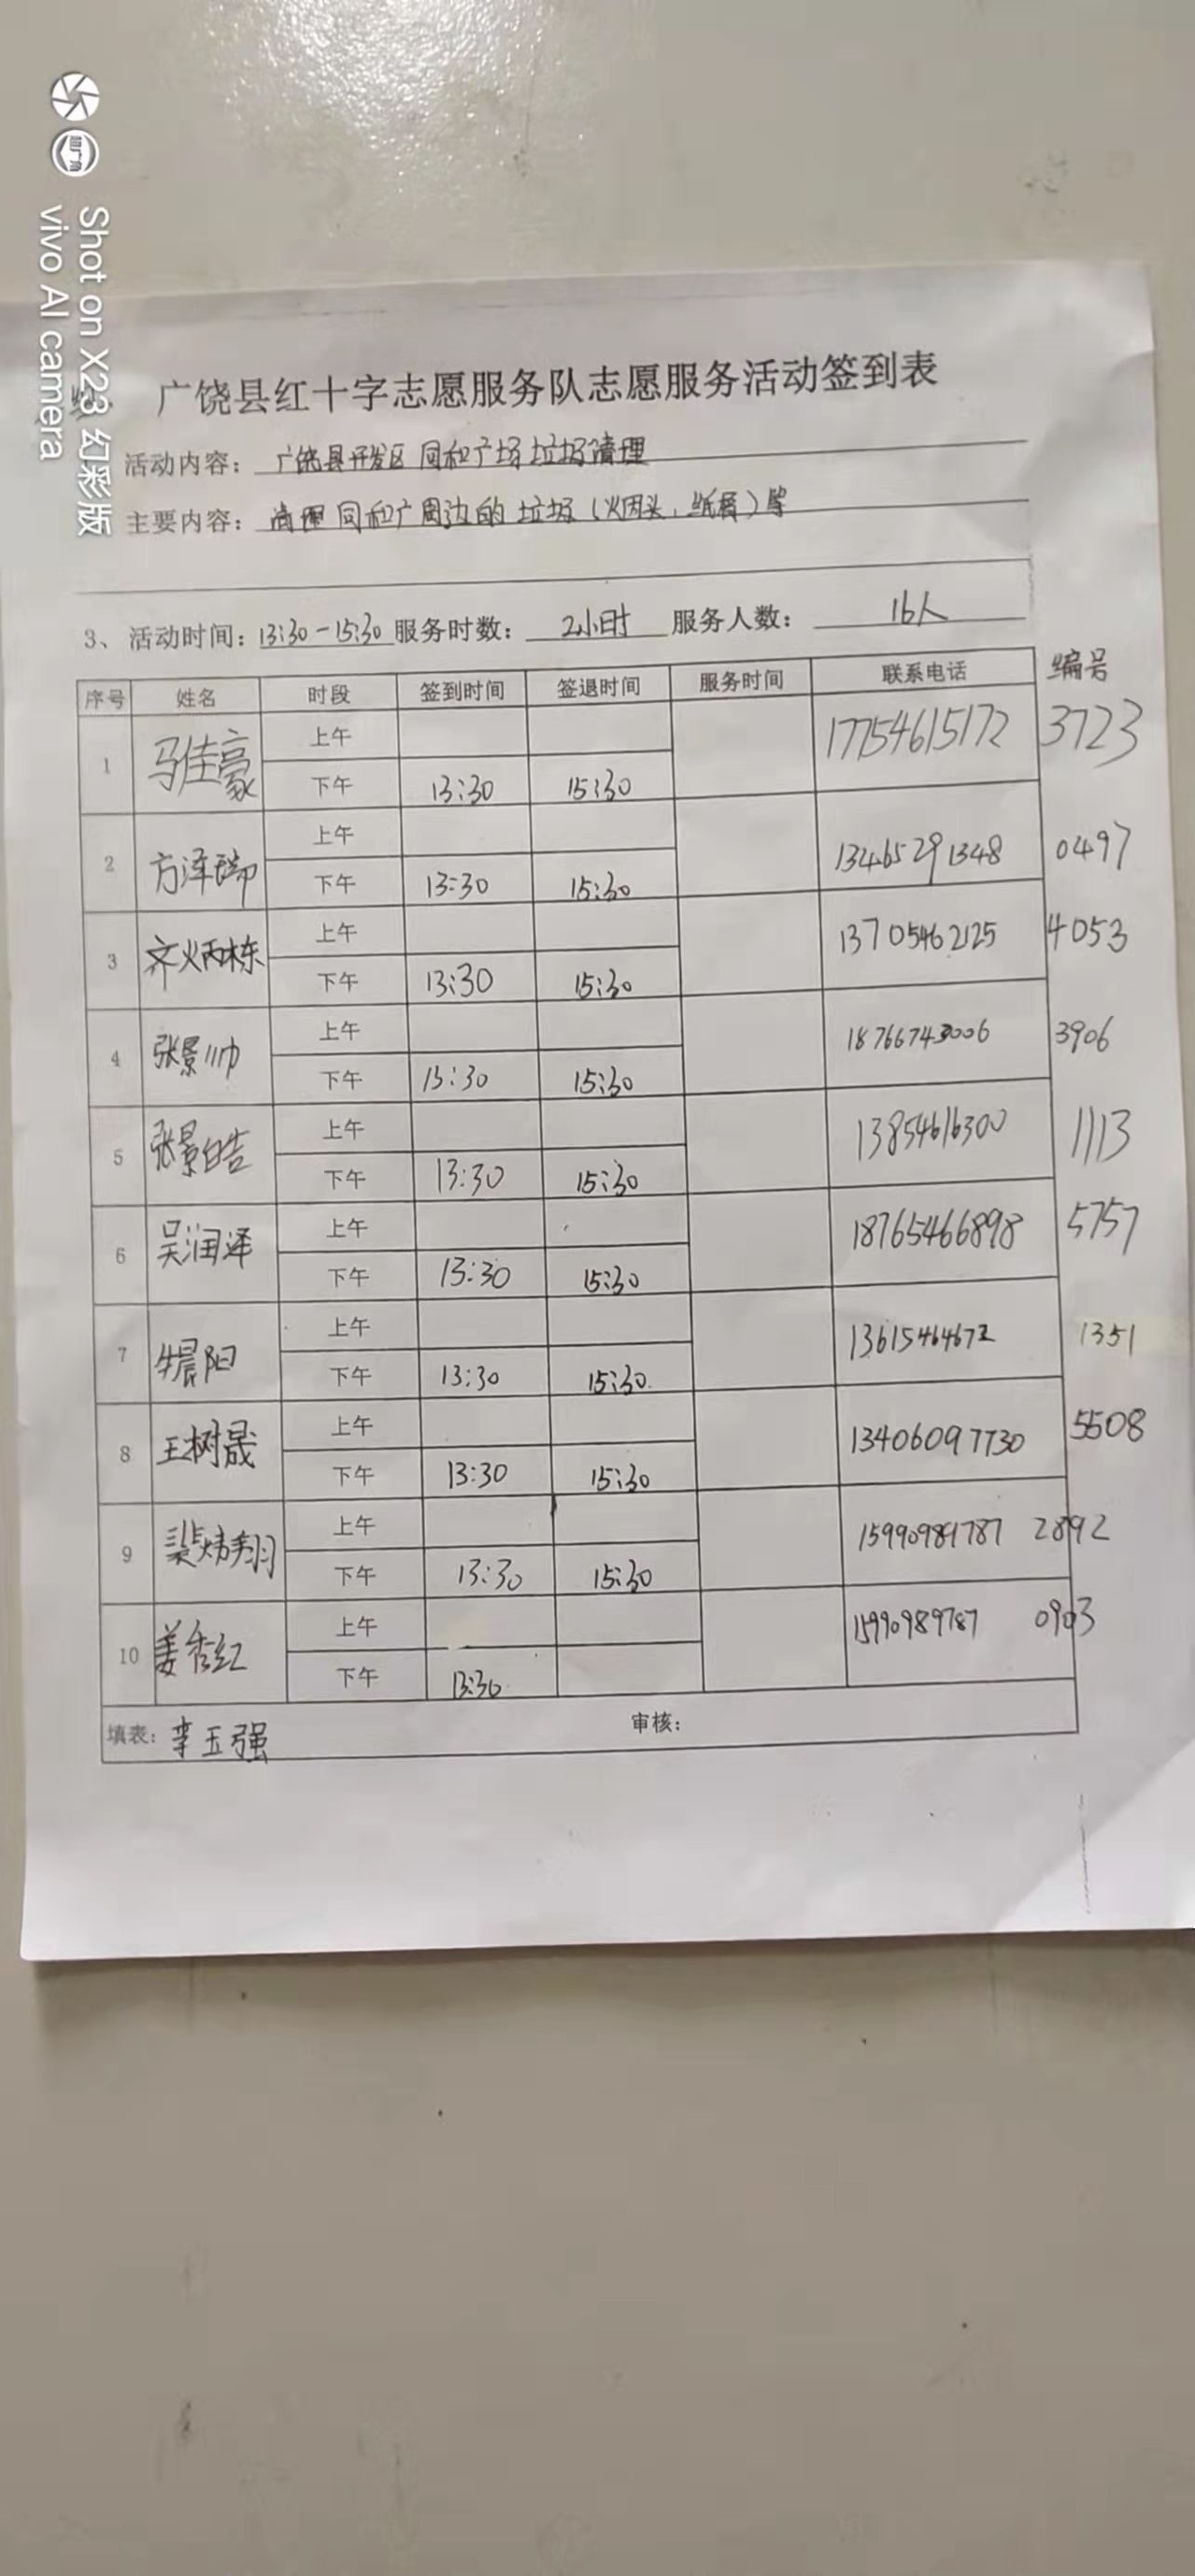 Shot on X23 幻彩版
vivo AI camera
广饶县红十字志愿服务队志愿服务活动签到表
活动内容： 广饶县开发区 同和广场垃圾清理
主要内容： 清理 同和广周边的垃圾（烟头，纸屑）等
3、活动时间：13:30-15:30 服务时数： 2小时 服务人数： 16人
序号 姓名 时段 签到时间 签退时间 服务时间 联系电话 编号
1 马佳豪 上午 17754615172 3723
下午 13:30 15:30
2 方泽瑞 上午 13465291348 0497
下午 13:30 15:30
3 齐炳栋 上午 13705462125 4053
下午 13:30 15:30
4 张景帅 上午 18766743006 3906
下午 13:30 15:30
5 张景皓 上午 13854616300 1113
下午 13:30 15:30
6 吴润泽 上午 18765466898 5757
下午 13:30 15:30
7 牛晨阳 上午 13615464672 1351
下午 13:30 15:30
8 王树晟 上午 13406097730 5508
下午 13:30 15:30
9 裴炜翔 上午 15990989787 2892
下午 13:30 15:30
10 姜秀红 上午 15990989787 0903
下午 13:30
填表：李玉强 审核：